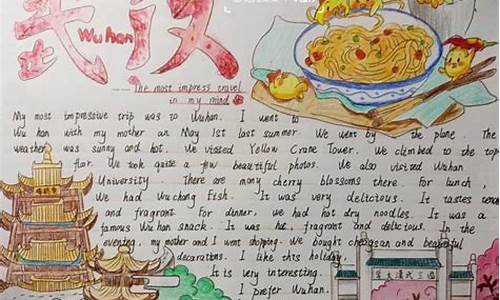 武汉
Wuhan
The most impress travel
in my mind
My most impressive trip was to Wuhan. I went to
Wu han with my mother on May 1st last summer. We went by the plane. The
weather was sunny and hot. We visited Yellow Crane Tower. We climbed to the top
flor. We took quite a few beautiful photos. We also visited Wuhan
University. There are many cherry blossoms there. For lunch,
we had Wuchang Fish. It was very delicious. It tastes
and fragrant. For dinner, we had hot dry noodles. It was a
famous Wuhan snack. It was hot, fragrant and delicious. In the
evening, my mother and I went shopping. We bought cheogsan and beautiful
decarations. I like this holiday.
It is very interesting.
I prefer Wuhan.